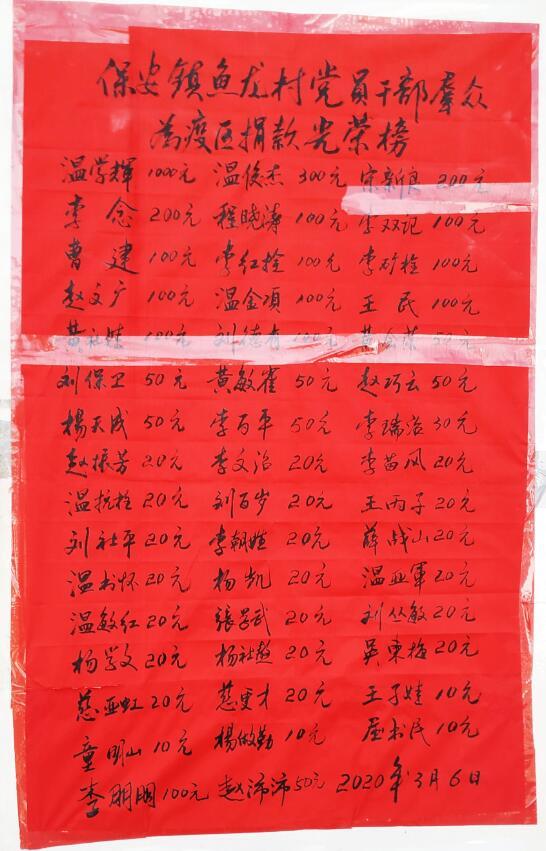 保安镇鱼龙村党员干部羣众
为疫区捐款光荣榜
温学輝 1000元 温俊杰 300元 宋新良 200元
李念 200元 程晓涛 100元 李双记 100元
曹建 100元 李红拴 100元 李矿栓 100元
赵文广 100元 温金项 100元 王民 100元
黄社娃 100元 刘德有 100元 黄金荣 50元
刘保卫 50元 黄敏雀 50元 赵巧云 50元
楊天成 50元 李百平 50元 李瑞治 30元
赵振芳 20元 李文治 20元 李苗凤 20元
温抗栓 20元 刘百岁 20元 王丙子 20元
刘社平 20元 李朝娃 20元 薛战山 20元
温书怀 20元 杨凯 20元 温亚軍 20元
温敏红 20元 張学武 20元 刘丛敏 20元
杨学文 20元 杨社教 20元 吴東梅 20元
慈亚虹 20元 慈更才 20元 王子娃 10元
童明山 10元 楊做勤 10元 屈书民 10元
李朋朋 100元 赵沛沛 50元 2020年3月6日